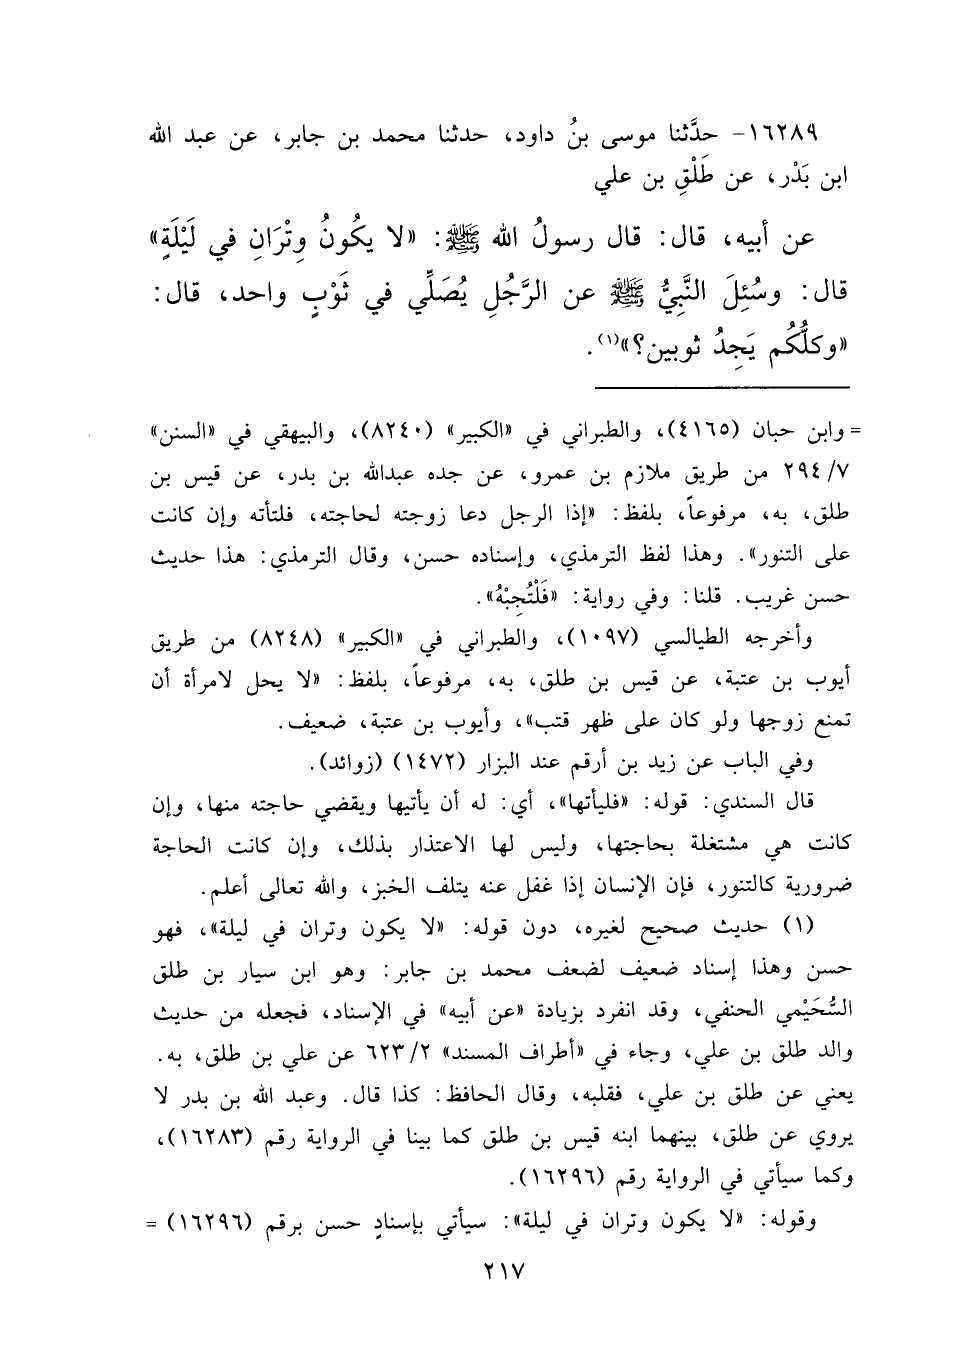 ١٦٢٨٩- حدَّثنا موسى بنُ داود، حدثنا محمد بن جابر، عن عبد الله
ابن بَدْر، عن طَلْقِ بن علي
عن أبيه، قال: قال رسولُ الله ﷺ: «لا يكُونُ وِتْرَانِ في لَيْلَةٍ»
قال: وسُئِلَ النَّبِيُّ ﷺ عن الرَّجُلِ يُصَلِّي في ثَوْبٍ واحد، قال:
«وكلُّكُم يَجِدُ ثوبين؟»(١).
= وابن حبان (٤١٦٥)، والطبراني في «الكبير» (٨٢٤٠)، والبيهقي في «السنن»
٧/ ٢٩٤ من طريق ملازم بن عمرو، عن جده عبدالله بن بدر، عن قيس بن
طلق، به، مرفوعاً، بلفظ: «إذا الرجل دعا زوجته لحاجته، فلتأته وإن كانت
على التنور». وهذا لفظ الترمذي، وإسناده حسن، وقال الترمذي: هذا حديث
حسن غريب. قلنا: وفي رواية: «فَلْتُجِبْهُ».
وأخرجه الطيالسي (١٠٩٧)، والطبراني في «الكبير» (٨٢٤٨) من طريق
أيوب بن عتبة، عن قيس بن طلق، به، مرفوعاً، بلفظ: «لا يحل لامرأة أن
تمنع زوجها ولو كان على ظهر قتب»، وأيوب بن عتبة، ضعيف.
وفي الباب عن زيد بن أرقم عند البزار (١٤٧٢) (زوائد).
قال السندي: قوله: «فليأتها»، أي: له أن يأتيها ويقضي حاجته منها، وإن
كانت هي مشتغلة بحاجتها، وليس لها الاعتذار بذلك، وإن كانت الحاجة
ضرورية كالتنور، فإن الإنسان إذا غفل عنه يتلف الخبز، والله تعالى أعلم.
(١) حديث صحيح لغيره، دون قوله: «لا يكون وتران في ليلة»، فهو
حسن وهذا إسناد ضعيف لضعف محمد بن جابر: وهو ابن سيار بن طلق
السُّحَيْمي الحنفي، وقد انفرد بزيادة «عن أبيه» في الإسناد، فجعله من حديث
والد طلق بن علي، وجاء في «أطراف المسند» ٢/ ٦٢٣ عن علي بن طلق، به.
يعني عن طلق بن علي، فقلبه، وقال الحافظ: كذا قال. وعبد الله بن بدر لا
يروي عن طلق، بينهما ابنه قيس بن طلق كما بينا في الرواية رقم (١٦٢٨٣)،
وكما سيأتي في الرواية رقم (١٦٢٩٦).
وقوله: «لا يكون وتران في ليلة»: سيأتي بإسنادٍ حسن برقم (١٦٢٩٦) =
٢١٧